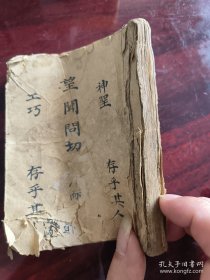 神聖
存乎其人
望聞問切
工巧
存乎其
孔夫子旧书网